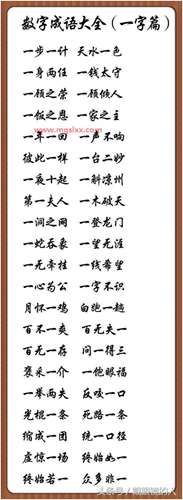 数字成语大全（一字篇）
一步一计 天水一色
一身两任 一钱太守
一顾之荣 一顾倾人
一饭之恩 一家之主
www.maslxx.com
一年一回 一声不响
彼此一样 一台二妙
一夜十起 一斛凉州
第一夫人 一木破天
一面之网 一登龙门
一蛇吞象 一望无涯
一无牵挂 一线希望
一心为公 一字不识
月怀一鸡 白跑一趟
百不一爽 百无失一
百无一存 问一得三
褒采一介 一饱眼福
一举两失 反咬一口
光棍一条 死路一条
缩成一团 统一口径
虚惊一场 终始如一
终始若一 众多非一
头条号 /